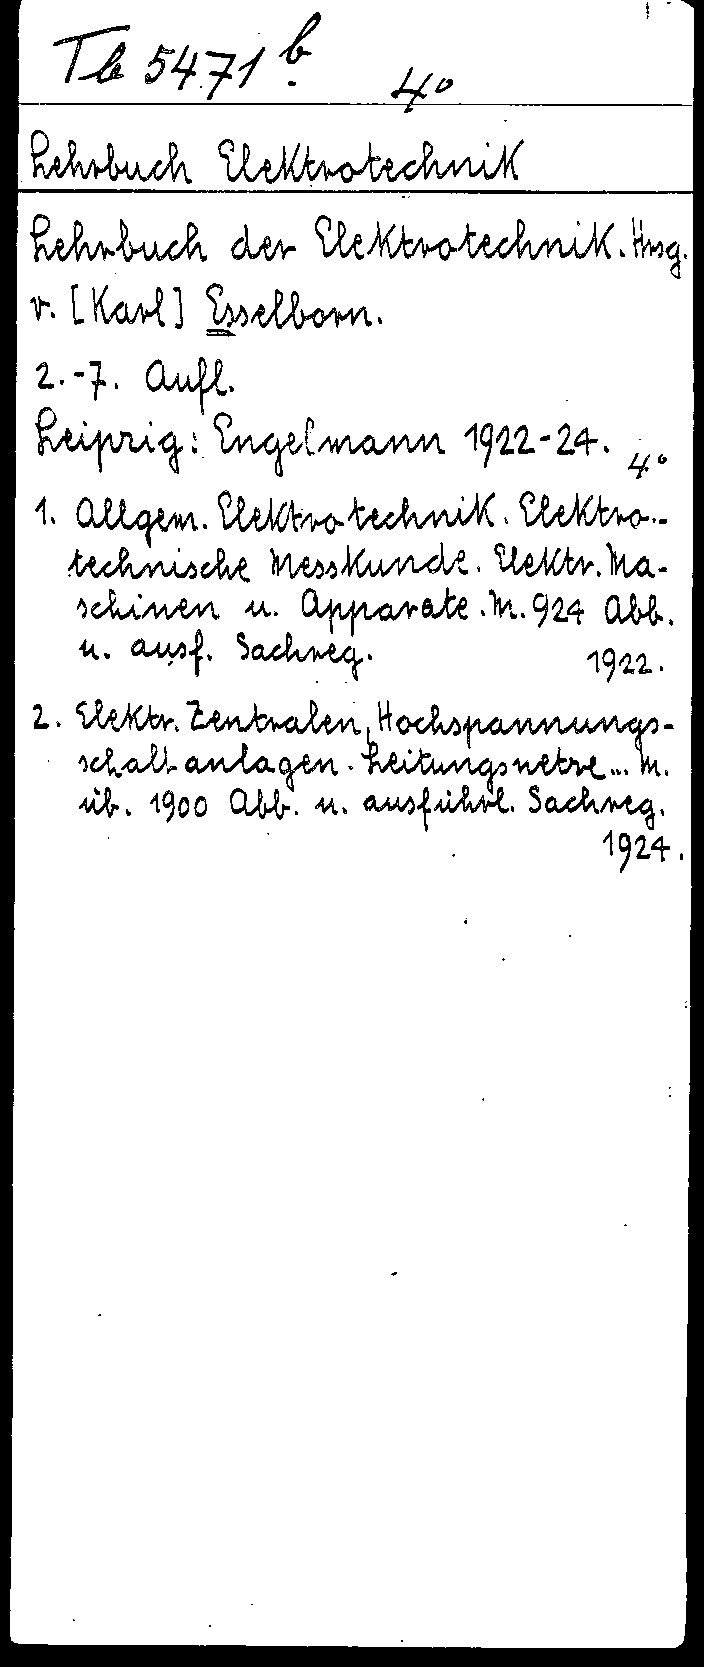 Tb 5471 b. 4°
Lehrbuch Elektrotechnik
Lehrbuch der Elektrotechnik. Hrsg.
v. [Karl] Esselborn.
2.-7. Aufl.
Leipzig: Engelmann 1922-24. 4°
1. Allgem. Elektrotechnik. Elektro-
technische Messkunde. Elektr. Ma-
schinen u. Apparate. M. 924 Abb.
u. ausf. Sachreg. 1922.
2. Elektr. Zentralen, Hochspannungs-
schaltanlagen. Leitungsnetze... M.
üb. 1900 Abb. u. ausführl. Sachreg.
1924.